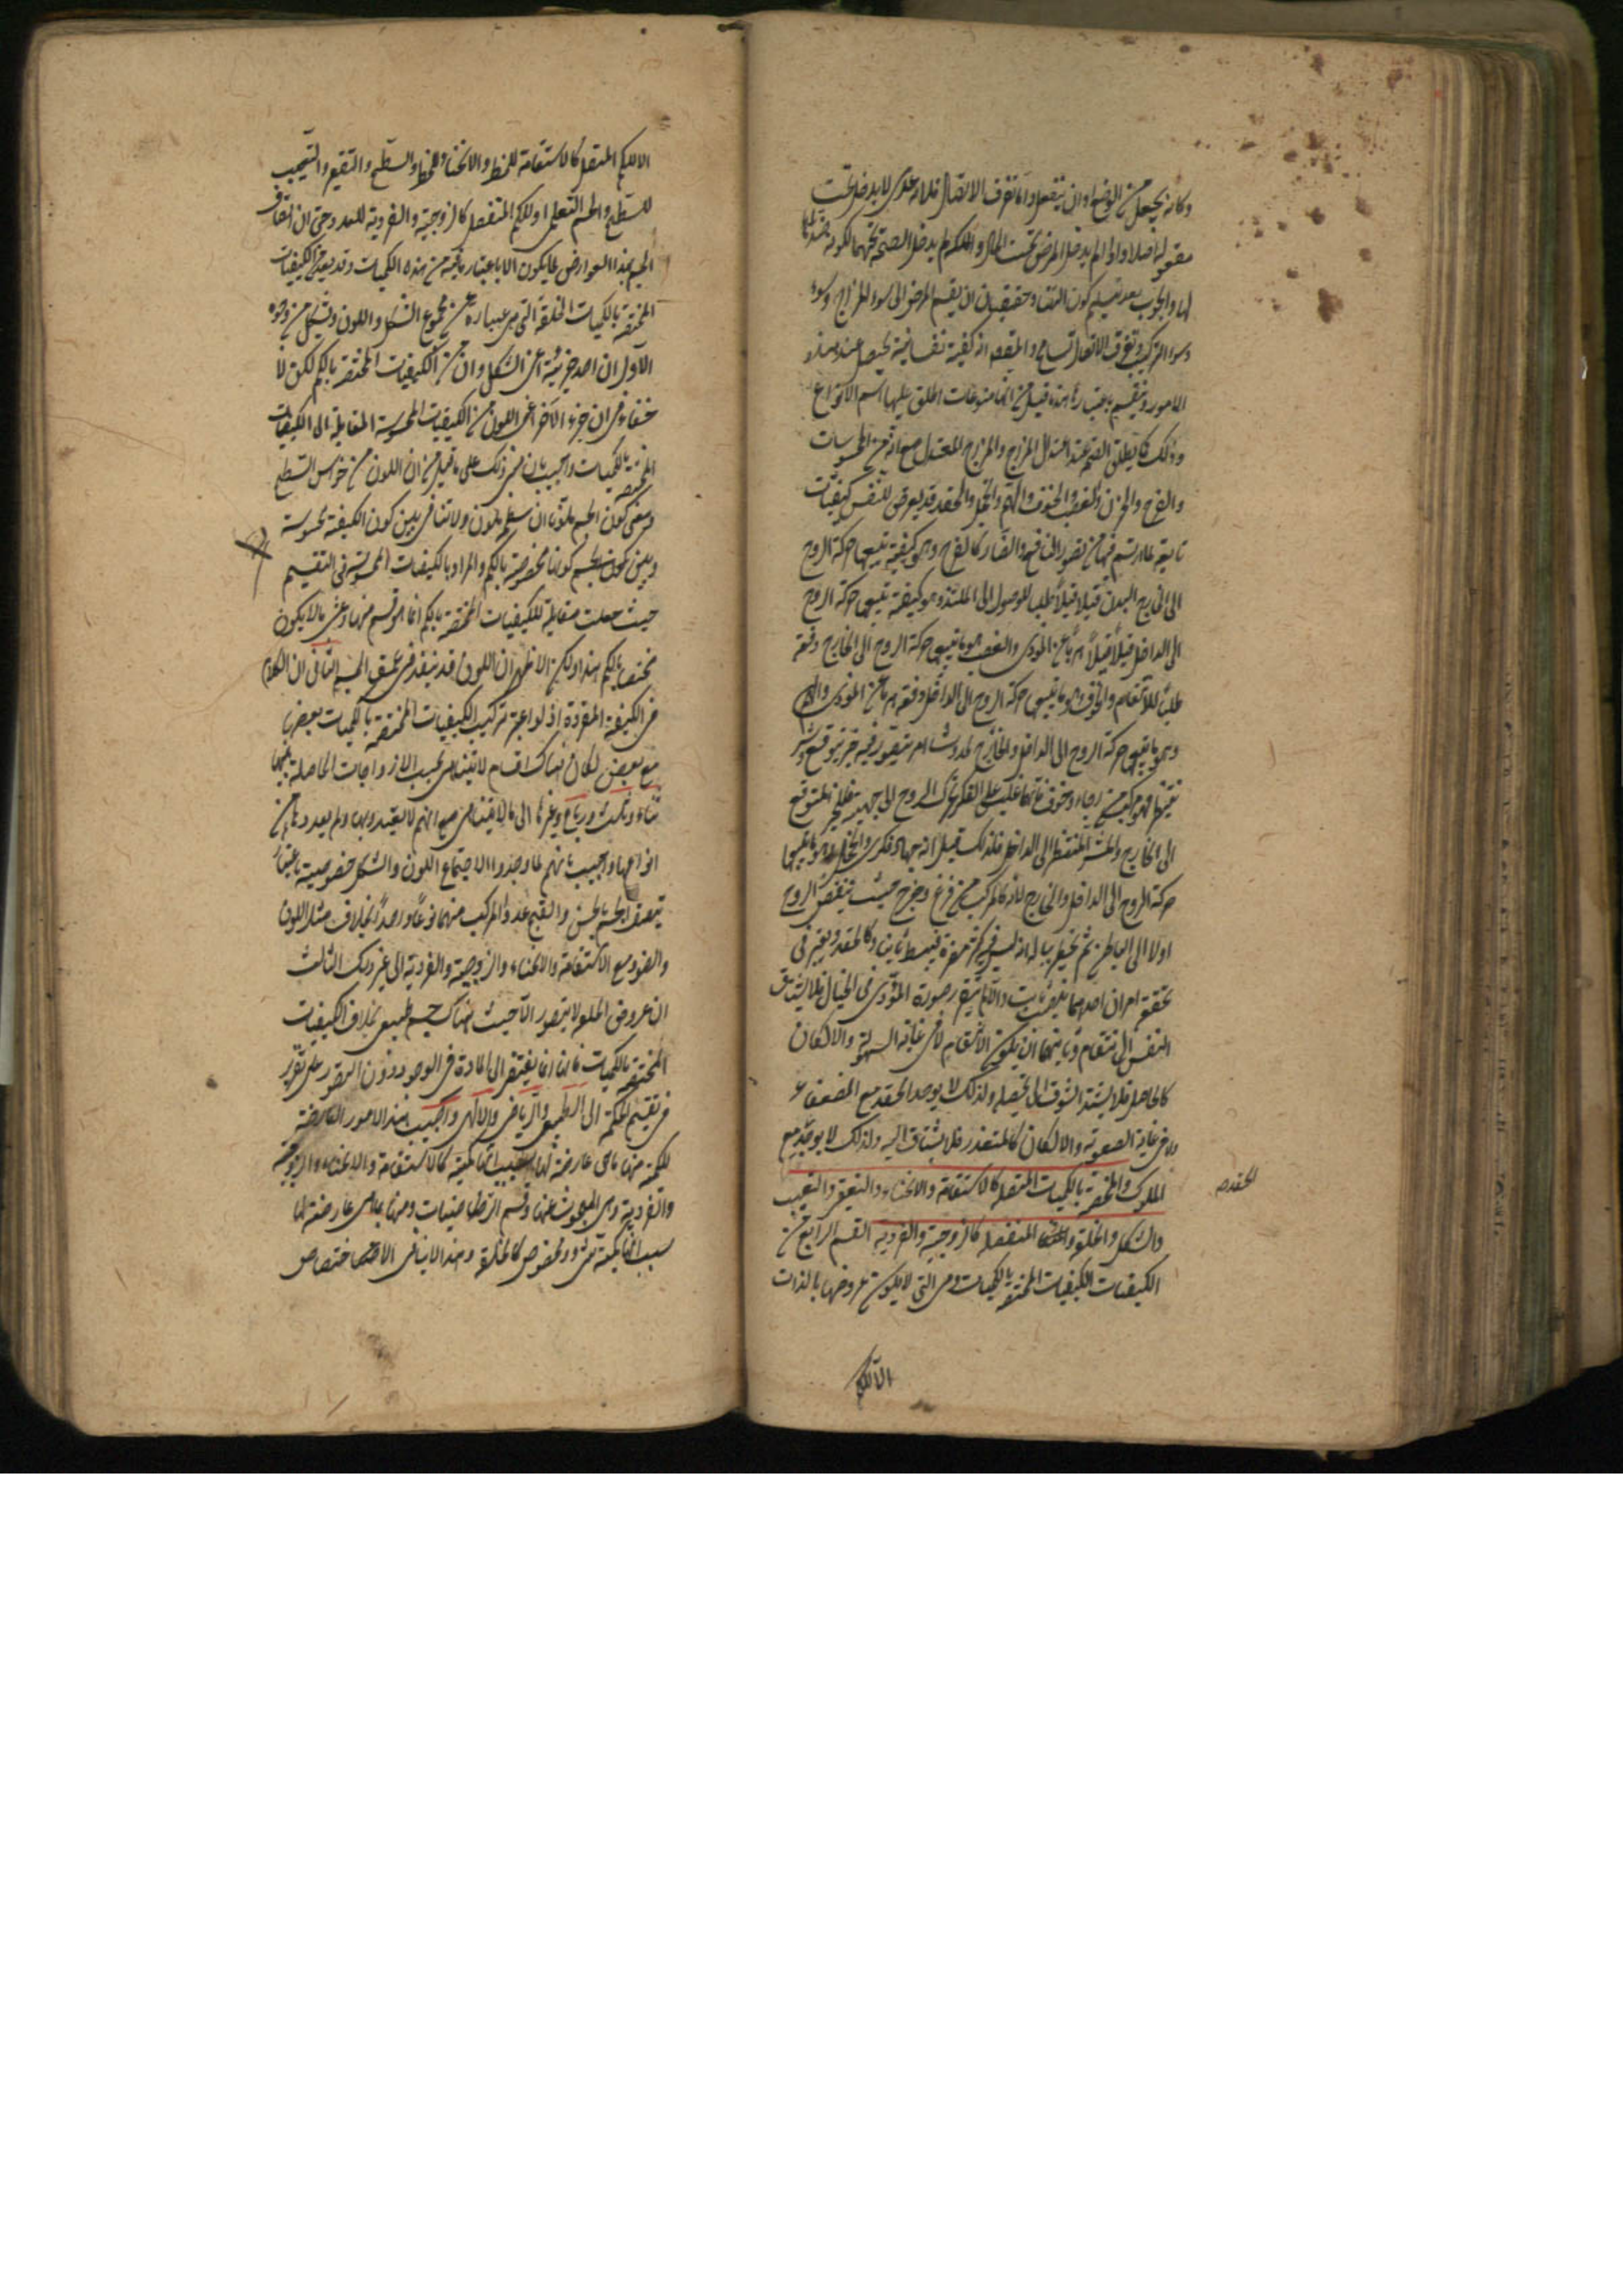 وكانه يجعل من الوضع او ان ينفعل واما تفرق الاتصال فلانه عدمى لا يدخل تحت
مقولة اصلا واذا لم يدخل المرض تحت الحال والملكة لم يدخل الصحة تحتهما لكونه ضدا
لها والجواب بعد تسليم كون التضاد حقيقيا ان تقسيم المرض الى سوء المزاج وسوء
وسوء التركيب وتفرق الاتصال تسامح والمقصود انه كيفية نفسانية يحصل عند هذه
الامور وينقسم باعتبار
وذلك كما يطلق الصحة عند اعتدال المزاج والمزاج المعتدل مع انه من المحسوسات
والفرح والحزن والغضب والخوف والهم والخجل والحقد قد يعرض للنفس كيفيات
تابعة لما يرتسم فيها من تصور النافع والضار كالفرح وهو كيفية يتبعها حركة الروح
الى خارج البدن قليلا قليلا طلبا للوصول الى الملتذ وهو كيفية يتبعها حركة الروح
الى الداخل قليلا قليلا هربا عن الموذى والغضب هو ما يتبعها حركة الروح الى الخارج دفعة
طلبا للانتقام والخوف هو ما يتبعها حركة الروح الى الداخل دفعة هربا عن الموذى والهم
وهو ما يتبعها حركة الروح الى الداخل والخارج لحدوث امر يتصور فيه خير يتوقع وشر
ينتظر فهو مركب من رجاء وخوف فايهما غلب على الفكر تحرك الروح الى جهته فللخير المتوقع
الى الخارج وللشر المنتظر الى الداخل فلذلك قيل انه جهاد فكرى والخجل هو ما يتبعها
حركة الروح الى الداخل والخارج لانه كالمركب من فزع وفرح حيث ينقبض الروح
اولا الى الباطن ثم يخطر بباله انه ليس فيه كثير مضرة فينبسط ثانيا وكالحقد ويعتبر فى
تحققه امران احدهما غضب ثابت والا لم يتقرر صورة الموذى فى الخيال فلا يشتاق
النفس الى الانتقام وثانيهما ان يكون الانتقام لا فى غاية السهولة والا لكان
كالحاصل فلا يشتد الشوق الى تحصيله ولذلك لا يوجد الحقد مع الضعفاء
ولا فى غاية الصعوبة والا لكان كالمتعذر فلا يشتاق اليه ولذلك لا يوجد مع
الملوك والمختصة بالكميات المتصلة كالاستقامة والانحناء والتقعير والتقبيب
والشكل والخلقة والمنفصلة كالزوجية والفردية القسم الرابع من
الكيفيات الكيفيات المختصة بالكميات وهى التى لا يكون عروضها بالذات
الا للكم
الا للكم المتصل كالاستقامة للخط والانحناء للخط والسطح والتقعير والتقبيب
للسطح والجسم التعليمى او للكم المنفصل كالزوجية والفردية للعدد حتى ان اتصاف
الجسم بهذه العوارض لا يكون الا باعتبار ما فيه من هذه الكميات وقد يعد من الكيفيات
المختصة بالكميات الخلقة التى هى عبارة عن مجموع الشكل واللون ويشكل من وجوه
الاول ان احد جزئيه اعنى الشكل وان كان من الكيفيات المختصة بالكم لكن لا
خفاء فى ان جزءه الآخر اعنى اللون من الكيفيات المحسوسة المقابلة الى الكيفيات
المختصة بالكميات واجيب بان مبنى ذلك على ما قيل من ان اللون من خواص السطح
ومعنى كون الجسم ملونا ان سطحه ملون ولا تنافى بين كون الكيفية محسوسة
وبين كونها مخصوصة بالكم والمراد بالكيفيات المحسوسة فى التقسيم
حيث جعلت مقابلة للكيفيات المختصة بالكم انما هو قسم منها وهى ما لا يكون
مختصا بالكم هذا ولكن الاظهر ان اللون قد ينفذ فى عمق الجسم الثانى ان الكلام
فى الكيفية المفردة اذ لو اعتبر تركيب الكيفيات المختصة بالكميات بعضها
مع بعض لكان هناك اقسام لا تتناهى بحسب الازدواجات الحاصلة بينها
ثناء وثلاث ورباع وغيرها الى ما لا يتناهى مع انهم لا يعتدون بها ولم يعدوها من
انواعها واجيب بانهم لما وجدوا الاجتماع اللون والشكل خصوصية باعتبار
يتصف الجسم بالحسن والقبح عدوا المركب منهما نوعا واحدا بخلاف مثل اللون
والضوء مع الاستقامة والانحناء والزوجية والفردية الى غير ذلك الثالث
ان عروض الخلقة لا يتصور الا حيث هناك جسم طبيعى بخلاف الكيفيات
المختصة بالكميات فانها انما يفتقر الى المادة فى الوجود دون التصور على ما تقرر
فى تقسيم الحكمة الى الطبيعى والرياضى والالهى واجيب بان هذه الامور العارضة
للكمية منها ما هى عارضة لها بسبب انها كمية كالاستقامة والانحناء والزوجية
والفردية وهى المبحوث عنها فى قسم الرياضيات ومنها ما هى عارضة لها
بسبب انها كمية شىء مخصوص كالخلقة وهذا لا ينافى الاختصاص